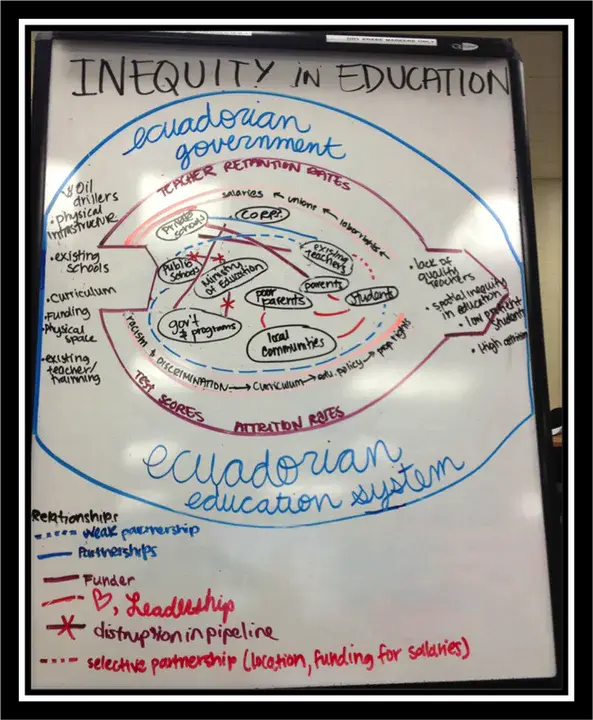 DRY ERASE MARKERS ONLY
INEQUITY IN EDUCATION
ecuadorian
government
TEACHER RETENTION RATES
salaries ← unions ← inheritance
Oil
drillers
• physical
infrastructure
• existing
schools
• Curriculum
• Funding
• Physical
space
• existing
teacher/
training
Private
schools
CORPS
Public
schools
Ministry
of Education
existing
teachers
poor
parents
parents
students
gov't
programs
local
communities
• lack of
quality
teachers
• spatial inequity
in education
• low
students
• High
racism & DISCRIMINATION → Curriculum → edu. policy → prop rights
TEST SCORES
ATTRITION RATES
ecuadorian
education system
Relationships
weak partnership
Partnerships
Funder
♡, Leadership
distruption in pipeline
selective partnership (location, funding for salaries)